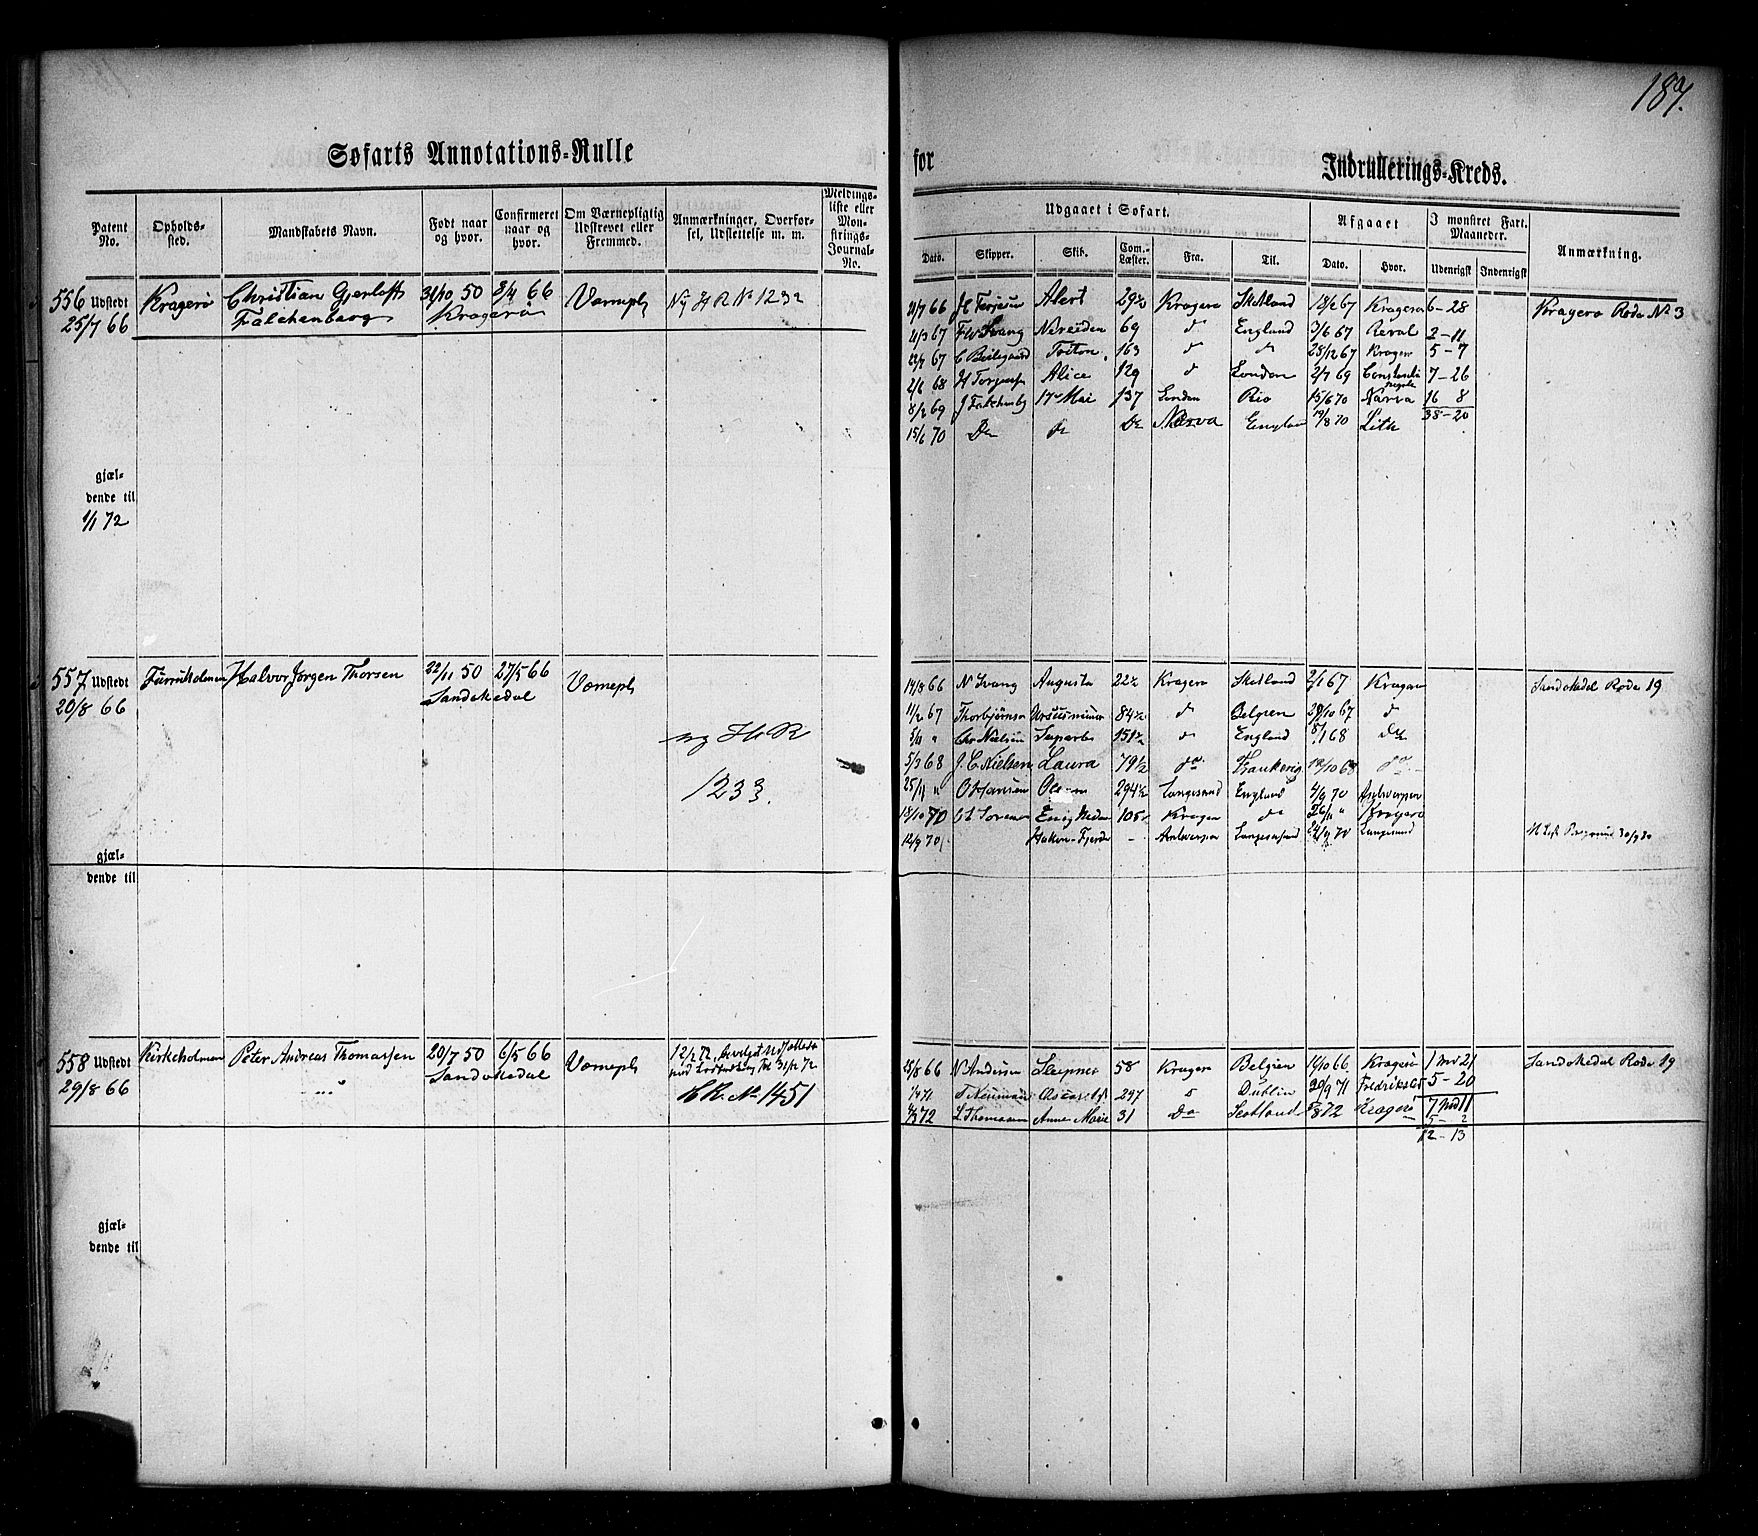 187.
Søfarts Annotations-Rulle
for
Indrullerings-Kreds.
Patent No.
Opholds-sted.
Mandskabets Navn.
Født naar og hvor.
Confirmeret naar og hvor.
Om Værnepligtig Udskrevet eller Fremmed.
Anmærkninger, Overførsel, Udslettelse m. m.
Meldingsliste eller Mønstrings-Journal-No.
Udgaaet i Søfart.
Afgaaet
I mønstret Fart. Maaneder.
Anmærkning.
Dato. Skipper. Skib. Com.-Læster. Fra. Til. Dato. Hvor. Udenrigsk Indenrigsk
556 Udstedt Kragerø Christian Gjerløfts 31/10 50 8/4 66 Værnepl Ny H R No 1232
25/7 66 Falchenberg Kragerø
21/7 66 H Terjesen Alert 29½ Kragerø Skotland 18/2 67 Kragerø 6-28 Kragerø Rode No 3
21/3 67 Svang Nereiden 69 d England 3/6 67 Reval 2-11
23/7 67 C Beilegaard Triton 163 d d 28/12 67 Kragerø 5-7
2/6 68 H Torjesen Alice 129 d London 2/7 69 7-26
8/2 69 J Falchenbg 17de Mai 137 London Rio 15/6 70 Narva 16 8
15/6 70 Do do Do Narva England 19/8 70 Lith 38-20
gjæl-
dende til
1/1 72
557 Udstedt Furuholmen Halvor Jørgen Thorsen 22/11 50 27/5 66 Værnepl
20/8 66 Sandøkedal
ny H R
1233.
14/8 66 N Svang Augusta 22½ Kragerø Skotland 2/1 67 Kragerø Sandøkedal Rode 19
11/2 67 Thorbjørnsen Ursus minor 84½ d Belgien 29/10 67 d
5/11 " Chr Nielsen Superb 151½ do England 8/1 68 do
5/3 68 J. C. Nielsen Laura 79½ do Frankrig 12/10 68 do
25/11 " O Hansen 294½ Langesund England 4/9 70 Antwerpen
18/10 70 Enig 105 Kragerø do 26/11 " Kragerø
12/9 70 Antwerpen Langesund 24/9 70 Langesund
gjæl-
dende til
558 Udstedt Kirkeholmen Peter Andreas Thomassen 20/7 50 6/5 66 Værnepl 12/2 72
29/8 66 Sandøkedal 31/12 72
H R. No 1451
25/8 66 N Andersen Sleipner 58 Kragerø Belgien 14/10 66 Kragerø 1 md 21 Sandøkedal Rode 19
1/4 71 Neuman Oscar 297 Dublin 20/9 71 5-20
72 L. Thomassen Anne Marie 31 do Scotland 872 Kragerø 7 md 11
5 2
12-13
gjæl-
dende til